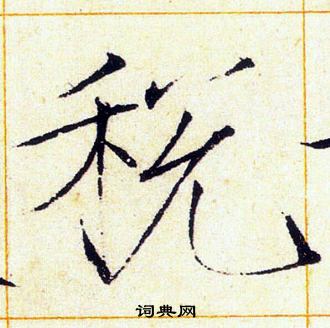 税
词典网